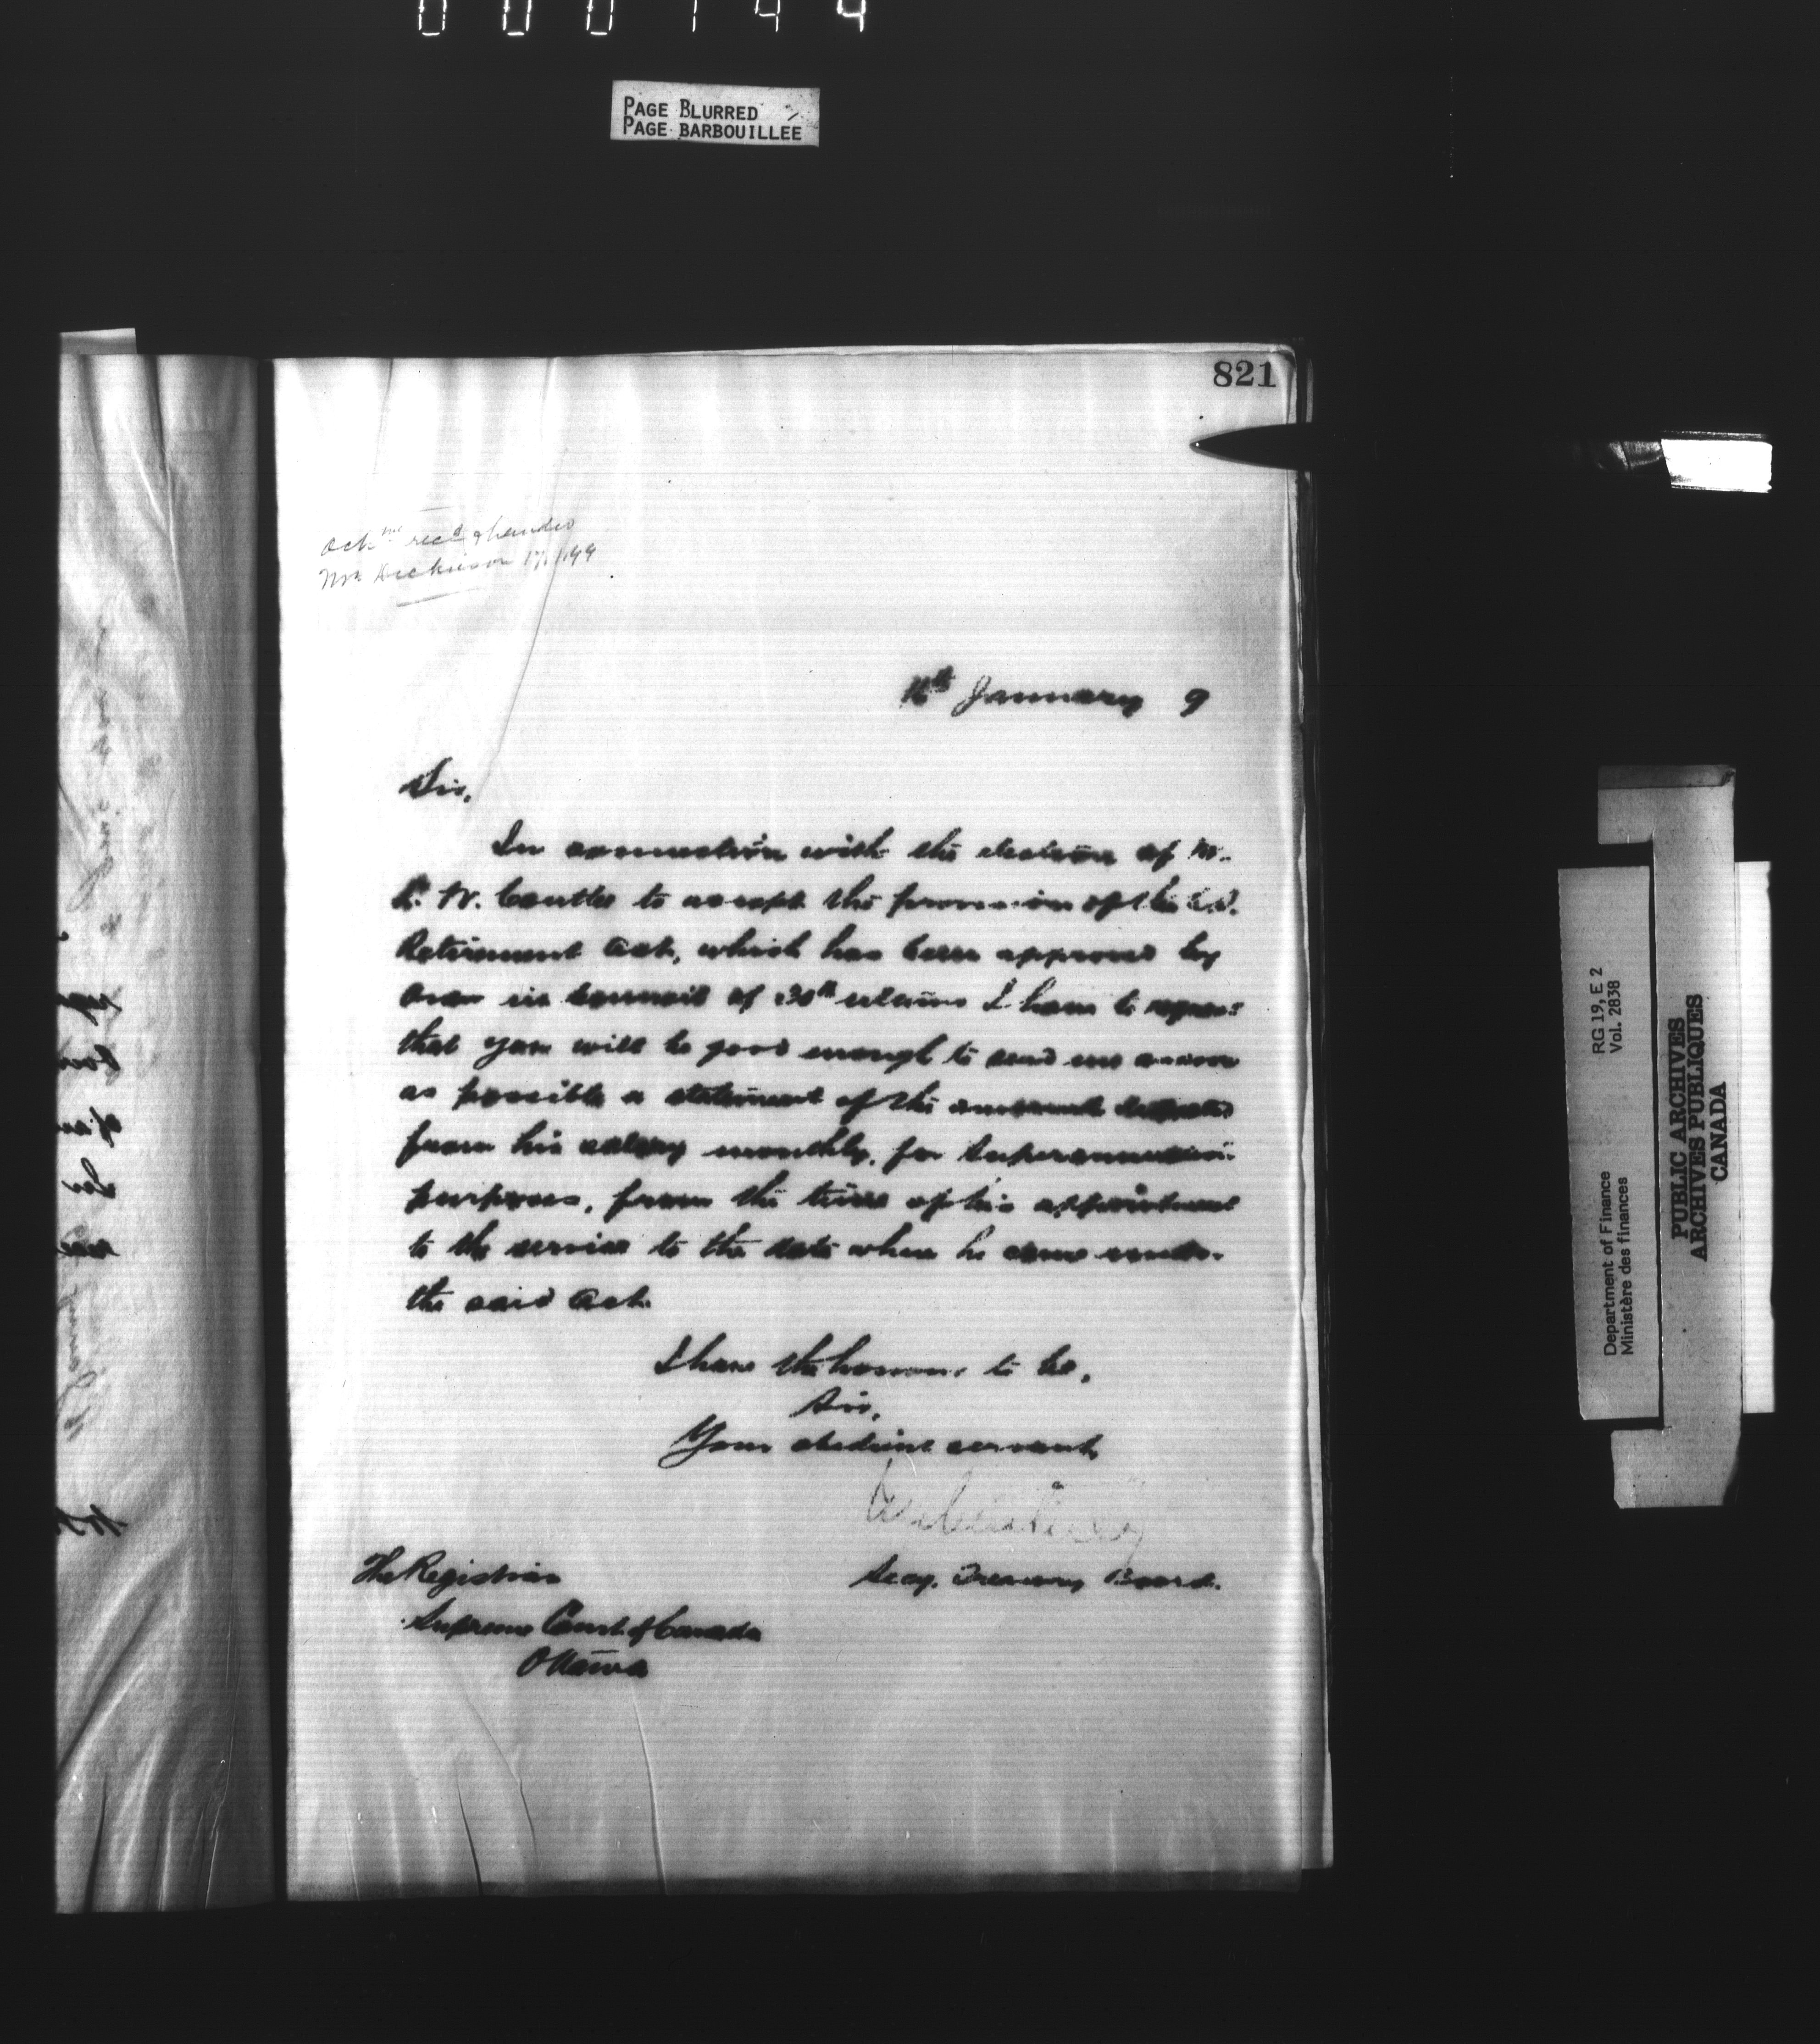 000144
PAGE BLURRED
PAGE BARBOUILLEE
821
Ackmt recd & handed
Mr Dickieson 17/1/99
16th January 9
Sir,
In connection with the election of Mr.
L. W. Coutlee to accept the provision of the C.S.
Retirement Act, which has been approved by
Order in Council of 30th ultimo I have to request
that you will be good enough to send me as soon
as possible a statement of the amount deducted
from his salary monthly, for Superannuation
purposes, from the time of his appointment
to the service to the date when he came under
the said Act.
I have the honour to be,
Sir,
Your obedient servant,
Secy. Treasury Board.
The Registrar
Supreme Court of Canada
Ottawa
RG 19, E 2
Vol. 2838
Department of Finance
Ministère des finances
PUBLIC ARCHIVES
ARCHIVES PUBLIQUES
CANADA